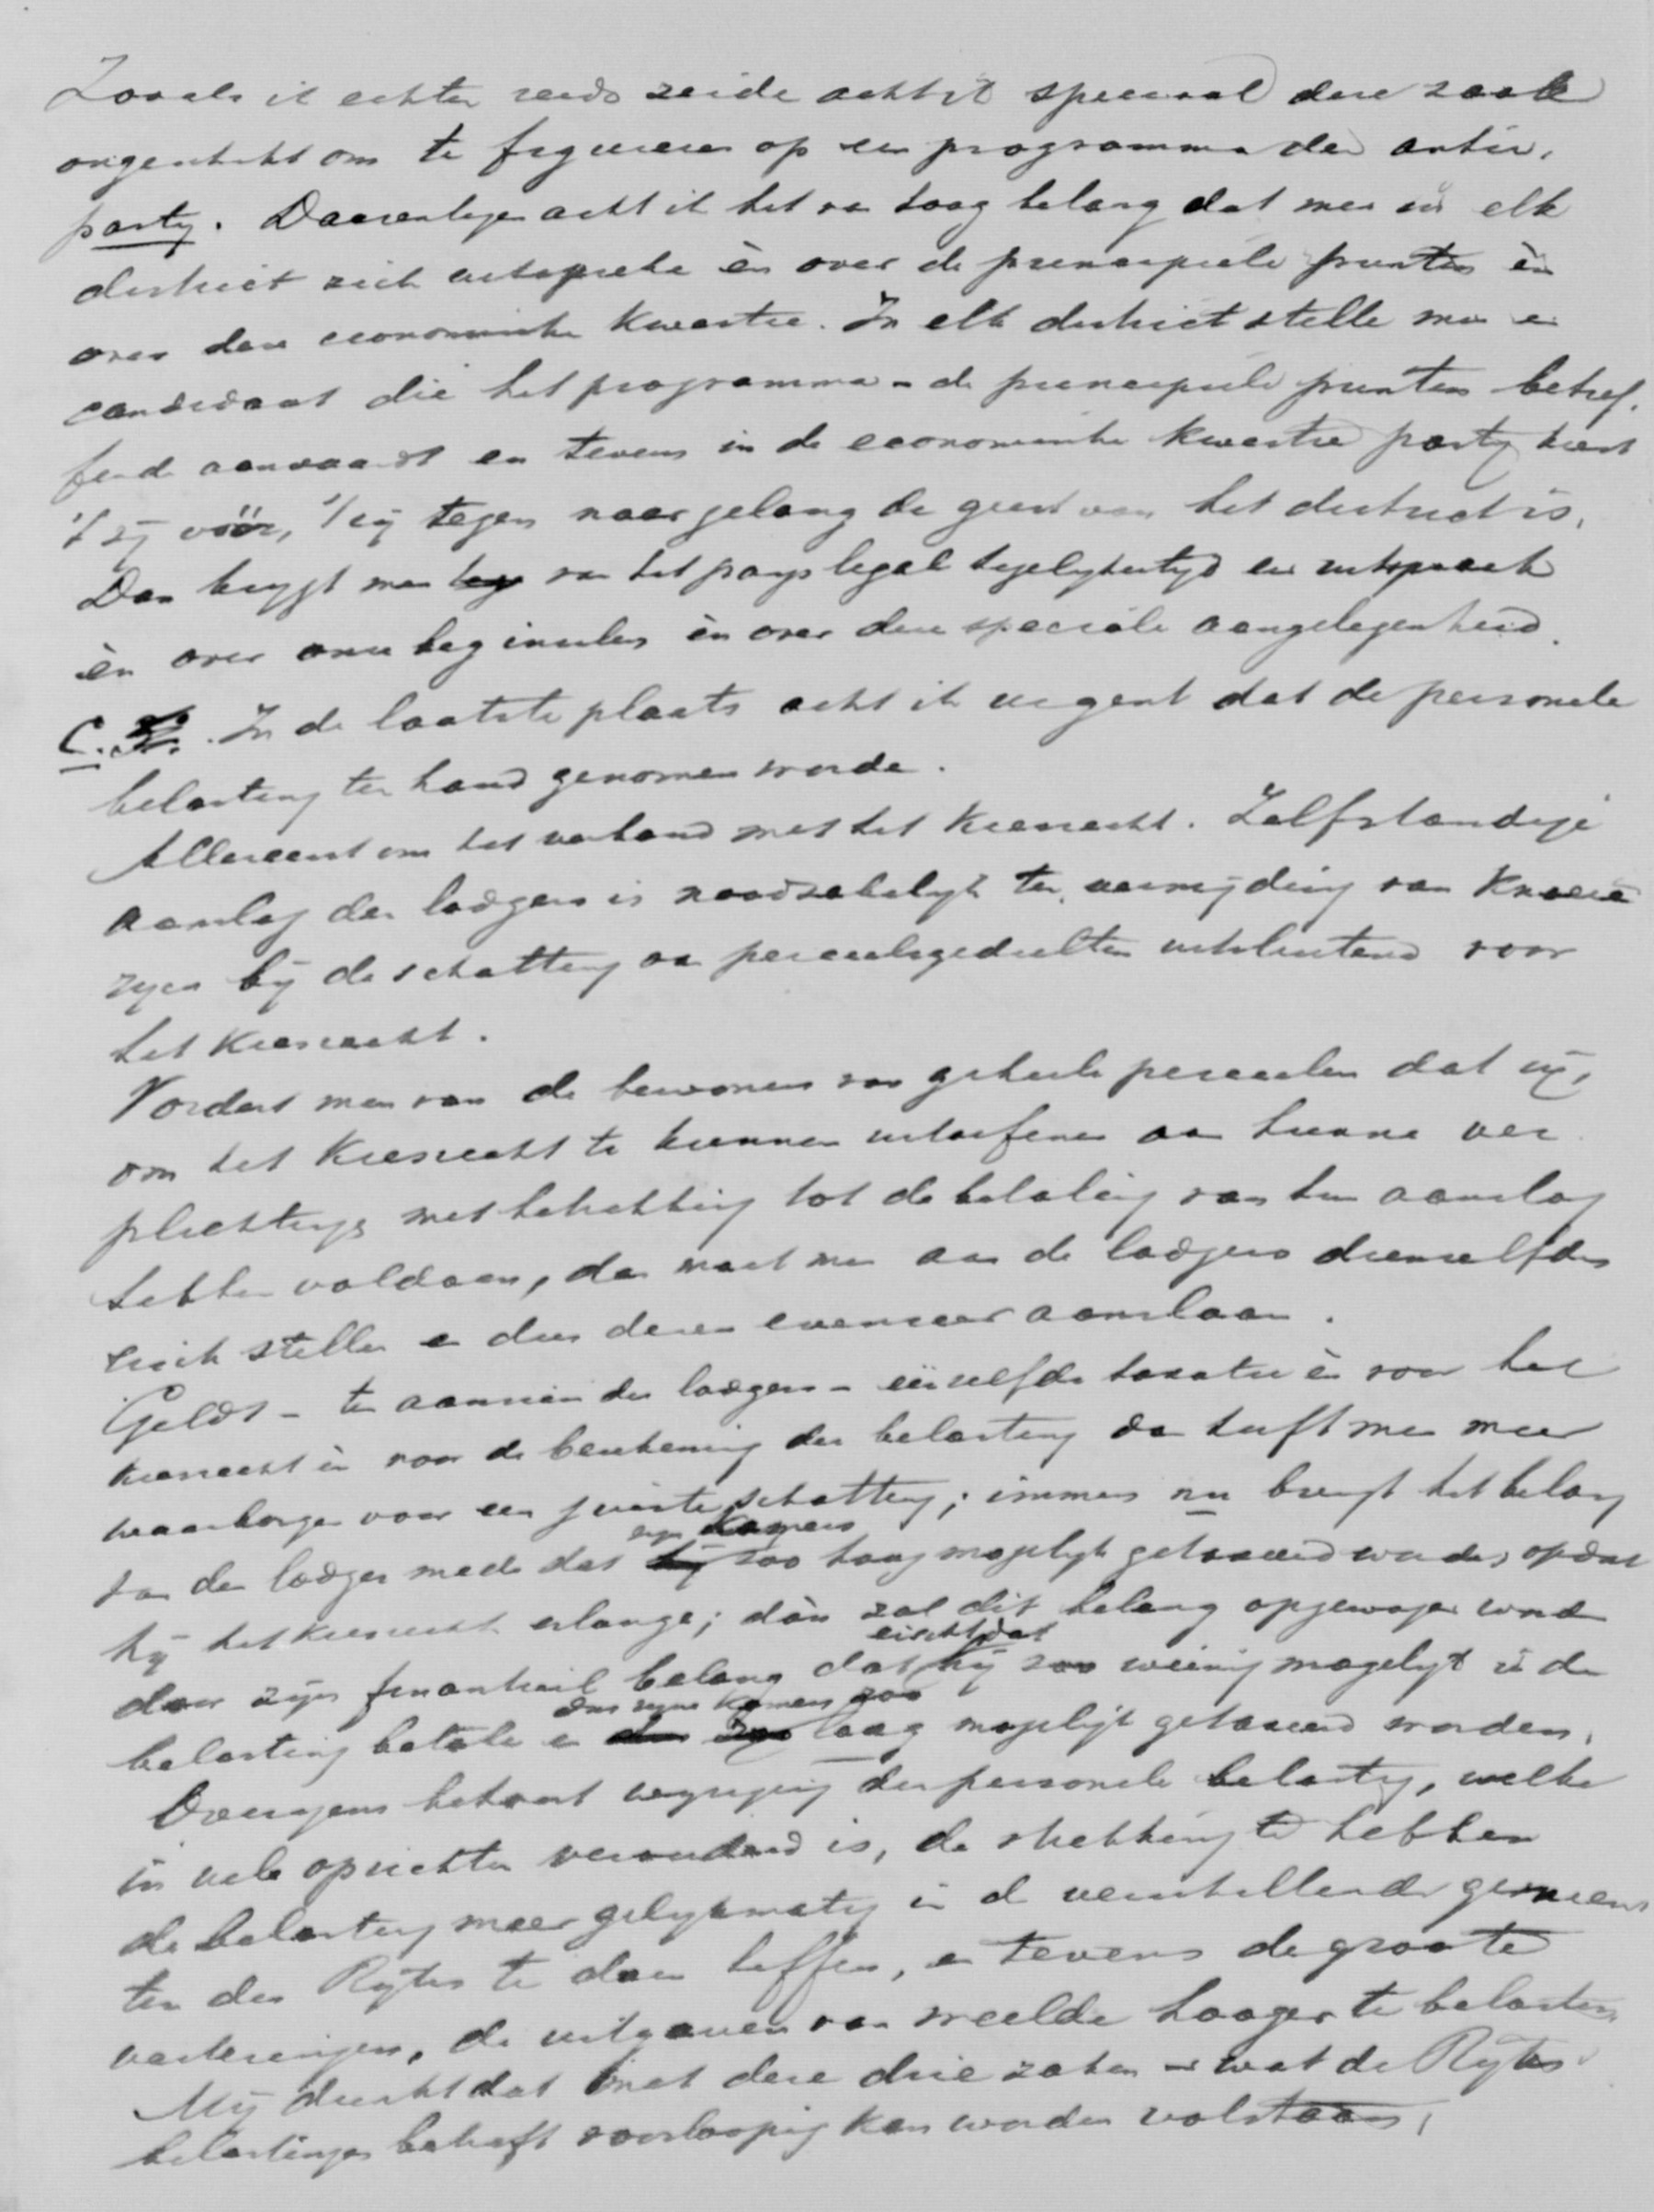 Zooals ik echter reeds zeide acht ik speciaal deze zaak
ongeschikt om te figureeren op een programma der antir.
party. Daarentegen acht ik het van hoog belang dat men in elk
district zich uitspreke èn over de principieele punten èn
over deze economische kwestie. In elk district stelle men een
candidaat die het programma - de principieele punten betref-
fende aanvaardt en tevens in de economische kwestie party kiest
't zij vóór, 't zij tegen naar gelang de geest van het district is.
Dan krygt men van het pays legal tegelykertyd een uitspraak
èn over onze beginselen èn over deze speciale aangelegenheid.
C. In de laatste plaats acht ik urgent dat de personele
belasting ter hand genomen worde.
Allereerst om het verband met het kiesrecht. Zelfstandige
aanslag der lodgers is noodzakelyk ter vermyding van knoeie-
ryen bij de schatting van perceelsgedeelten uitsluitend voor
het kiesrecht.
Vordert men van de bewoners van geheele perceelen dat zij,
om het kiesrecht te kunnen uitoefenen aan hunne ver-
plichtingen met betrekking tot de betaling van hun aanslag
hebben voldaan, dan moet men aan de lodgers denzelfden
eisch stellen en dus dezen evenzeer aanslaan.
Geldt - ten aanzien der lodgers - éénzelfde taxatie èn voor het
kiesrecht èn voor de berekening der belasting dan heeft men meer
waarborgen voor een juiste schatting; immers nu brengt het belang
van den lodger mede dat zyn kamers zoo hoog mogelyk getaxeerd worden, opdat
hij het kiesrecht erlange; dàn zal dit belang opgewogen worden
door zijn financieel belang dat eischt dat hij zoo weinig mogelyk in de
belasting betale en dus zyne kamers zoo laag mogelijk getaxeerd worden.
Overigens behoort wyziging der personele belasting, welke
in vele opzichten verouderd is, de strekking te hebben
de belasting meer gelykmatig in de verschillende gemeen-
ten des Ryks te doen heffen, en tevens de groote
verteringen, de uitgaven van weelde hooger te belasten.
Mij dunkt dat met deze drie zaken - wat de Ryks
belastingen betreft voorloopig kan worden volstaan.